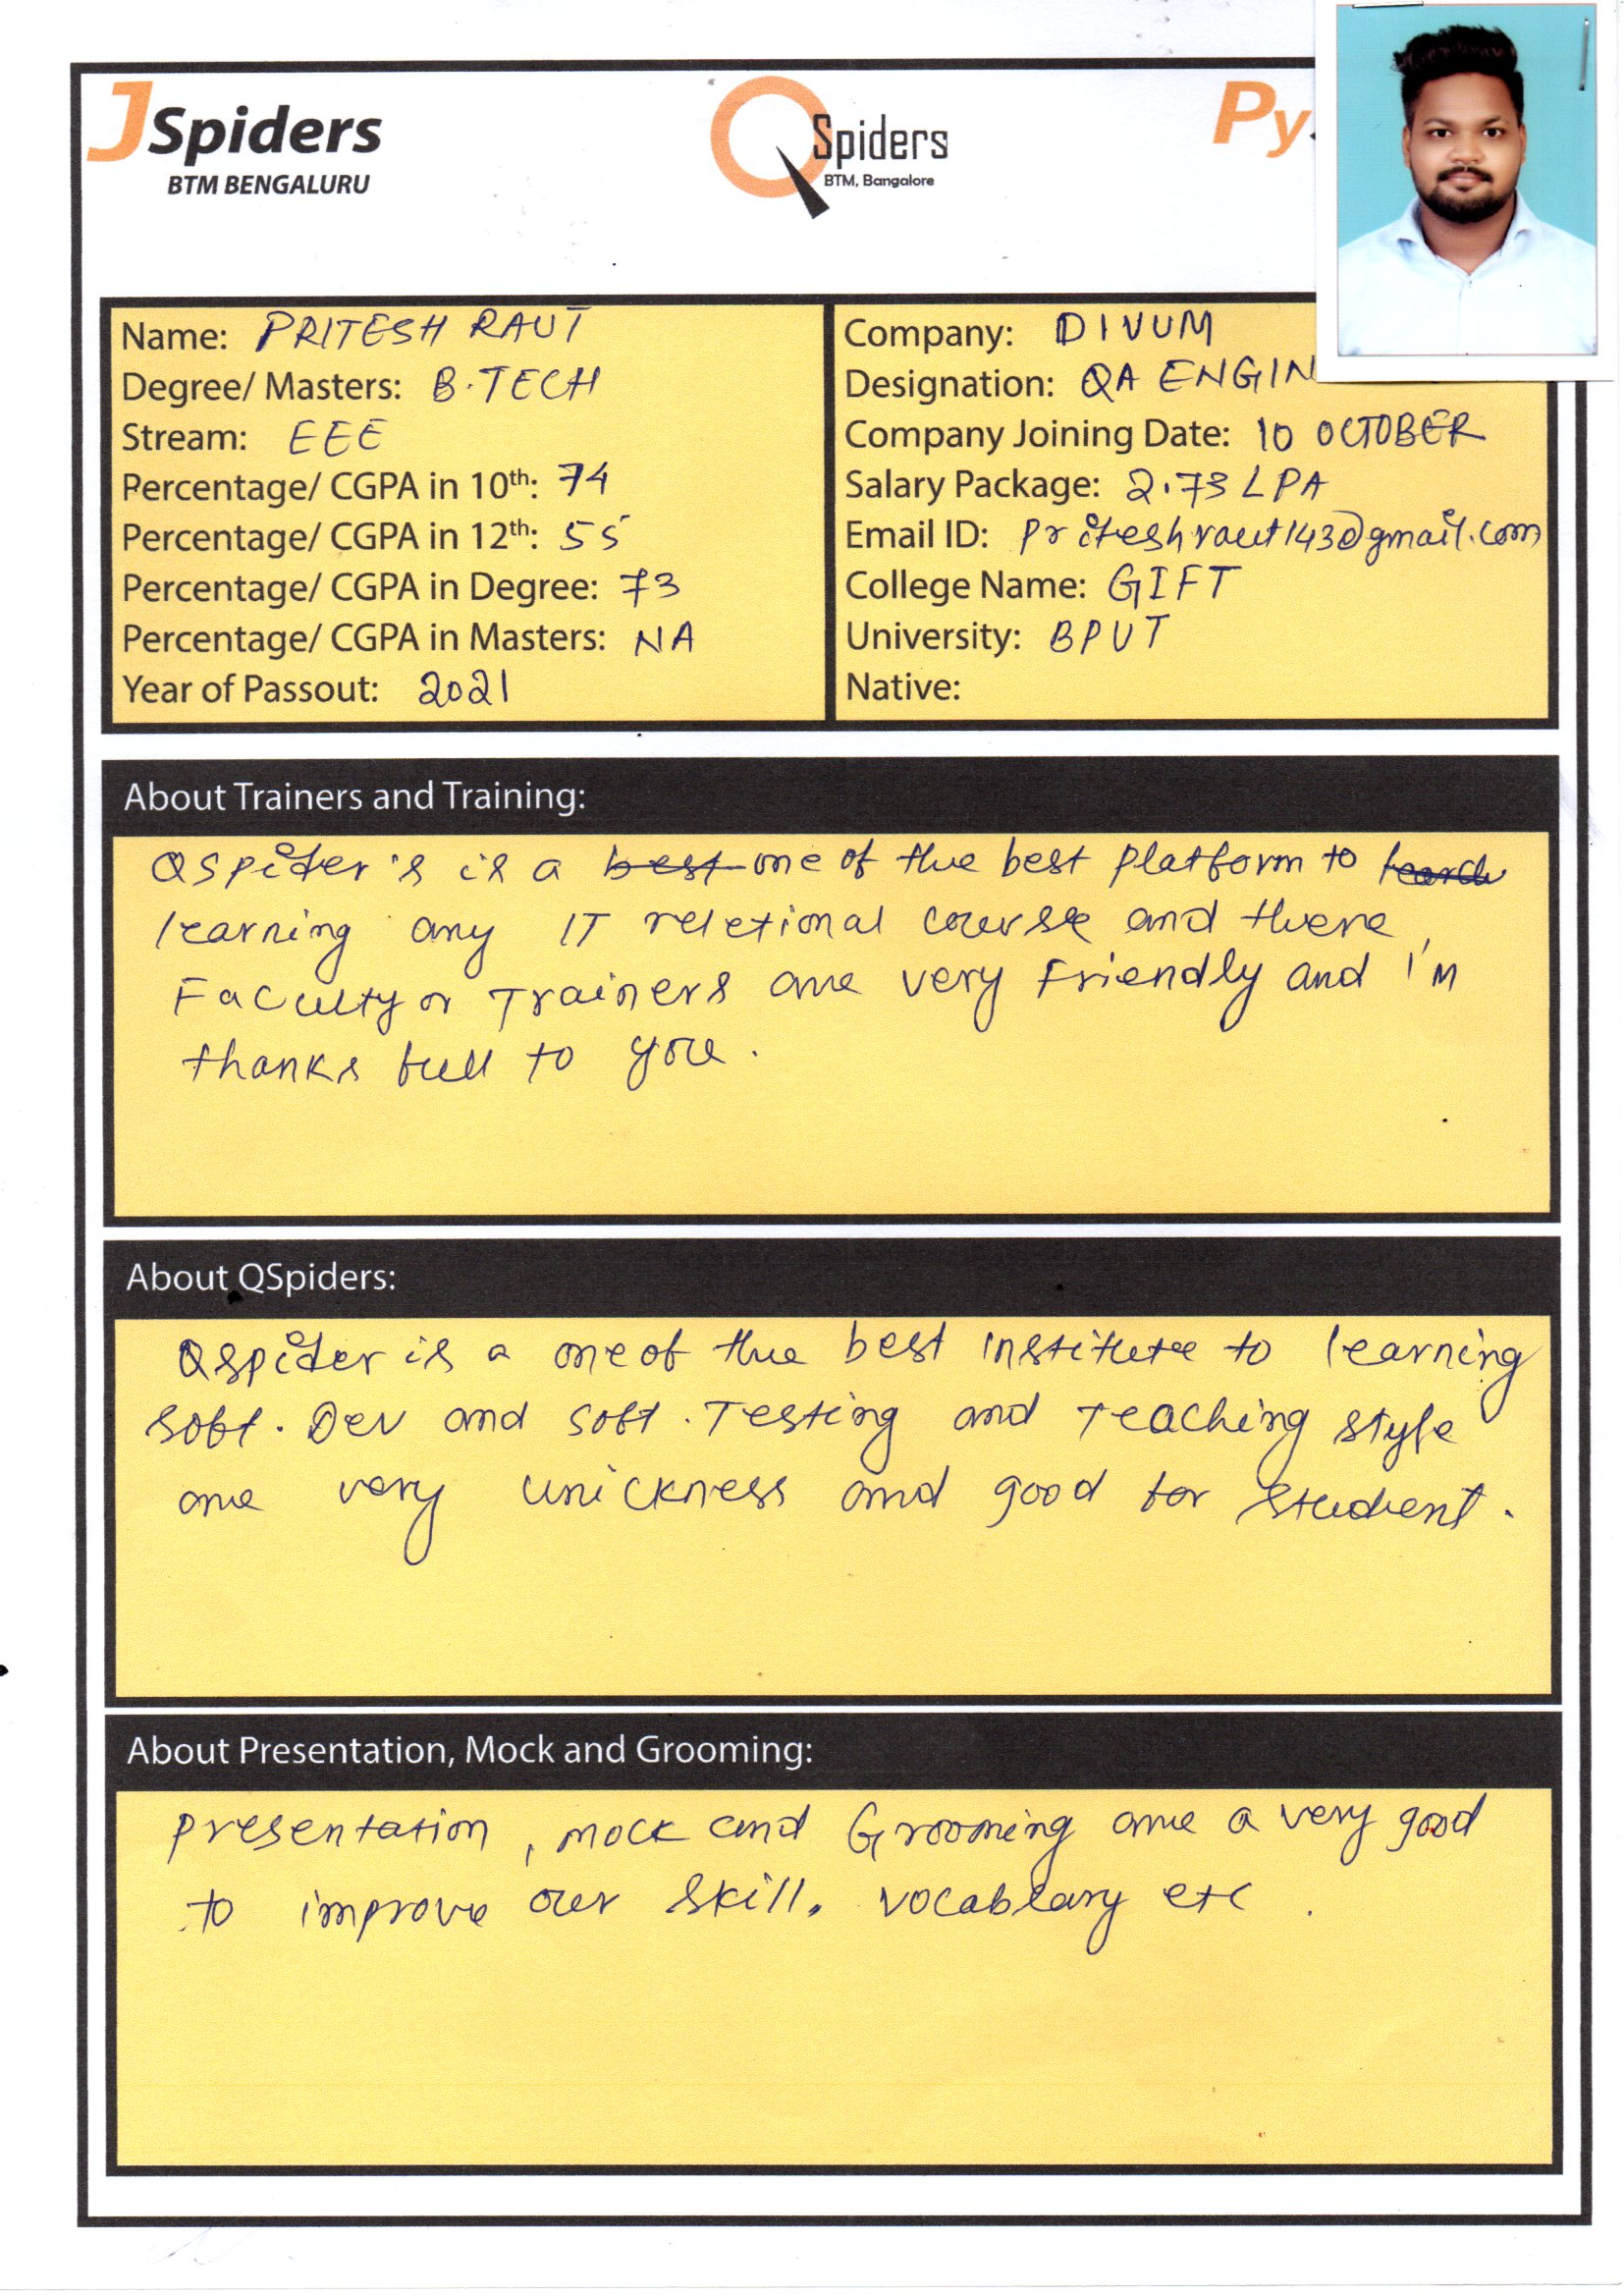 JSpiders
BTM BENGALURU
QSpiders
BTM, Bangalore
Py
Name: PRITESH RAUT
Degree/ Masters: B.TECH
Stream: EEE
Percentage/ CGPA in 10th: 74
Percentage/ CGPA in 12th: 55
Percentage/ CGPA in Degree: 73
Percentage/ CGPA in Masters: NA
Year of Passout: 2021
Company: DIVUM
Designation: QA ENGIN
Company Joining Date: 10 OCTOBER
Salary Package: 2.73 LPA
Email ID: priteshraut143@gmail.com
College Name: GIFT
University: BPUT
Native:
About Trainers and Training:
QSpider's is a best one of the best platform to
learning any IT reletional course and there
Faculty or Trainers are very Friendly and I'm
thanks full to you.
About QSpiders:
Qspider is a one of the best institute to learning
soft. Dev and soft. Testing and Teaching style
are very unickness and good for student.
About Presentation, Mock and Grooming:
presentation, mock and Grooming are a very good
to improve our skill. vocablary etc.